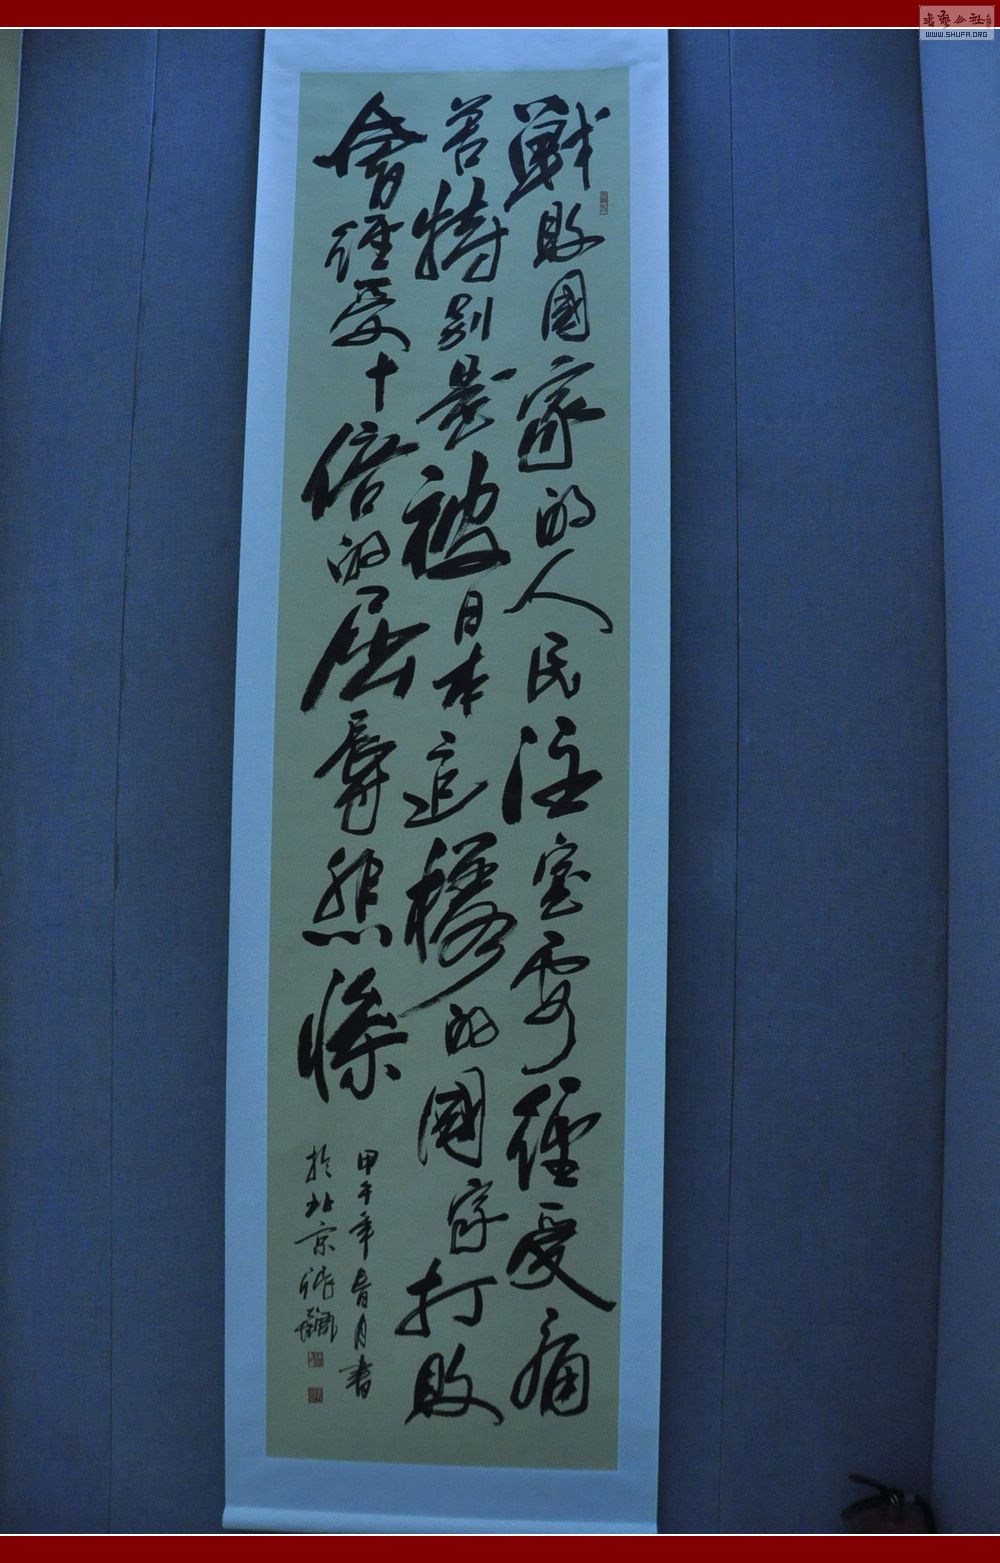 戰敗國家的人民注定要經受痛
苦特別是被日本這樣的國家打敗
會經受十倍的屈辱慘
甲午年月書
於北京
書藝公社
WWW.SHUFA.ORG